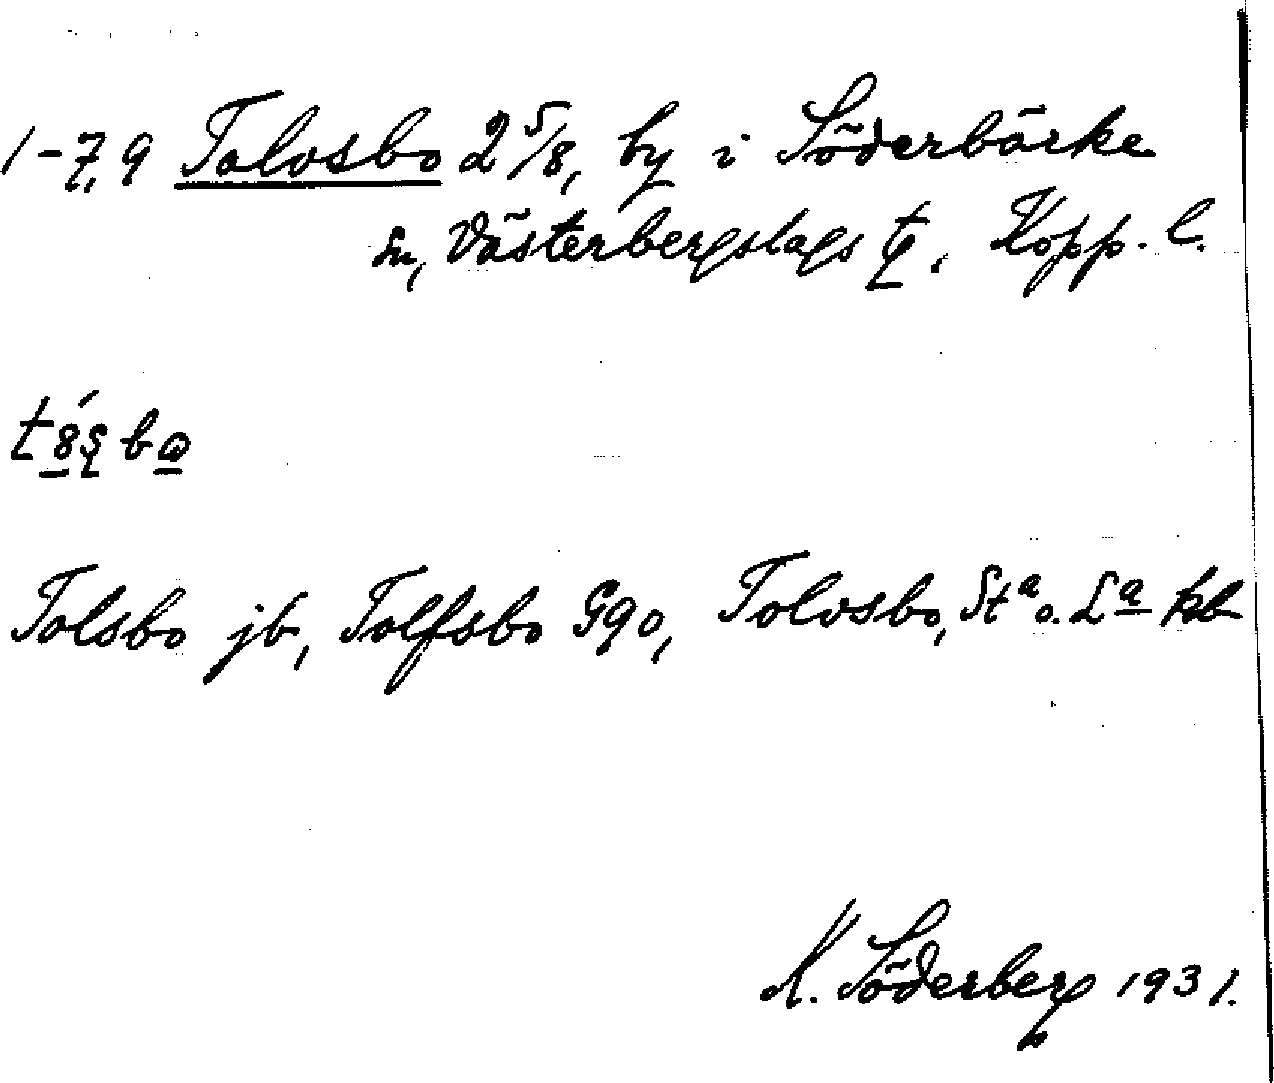 1-7,9 Tolvsbo 2 5/8, by i Söderbärke
sn, Västerbergslags tg. Kopp. l.
Tolsbo jb, Tolfsbo Ggo, Tolvsbo, Sta o. La kb
K. Söderberg 1931.